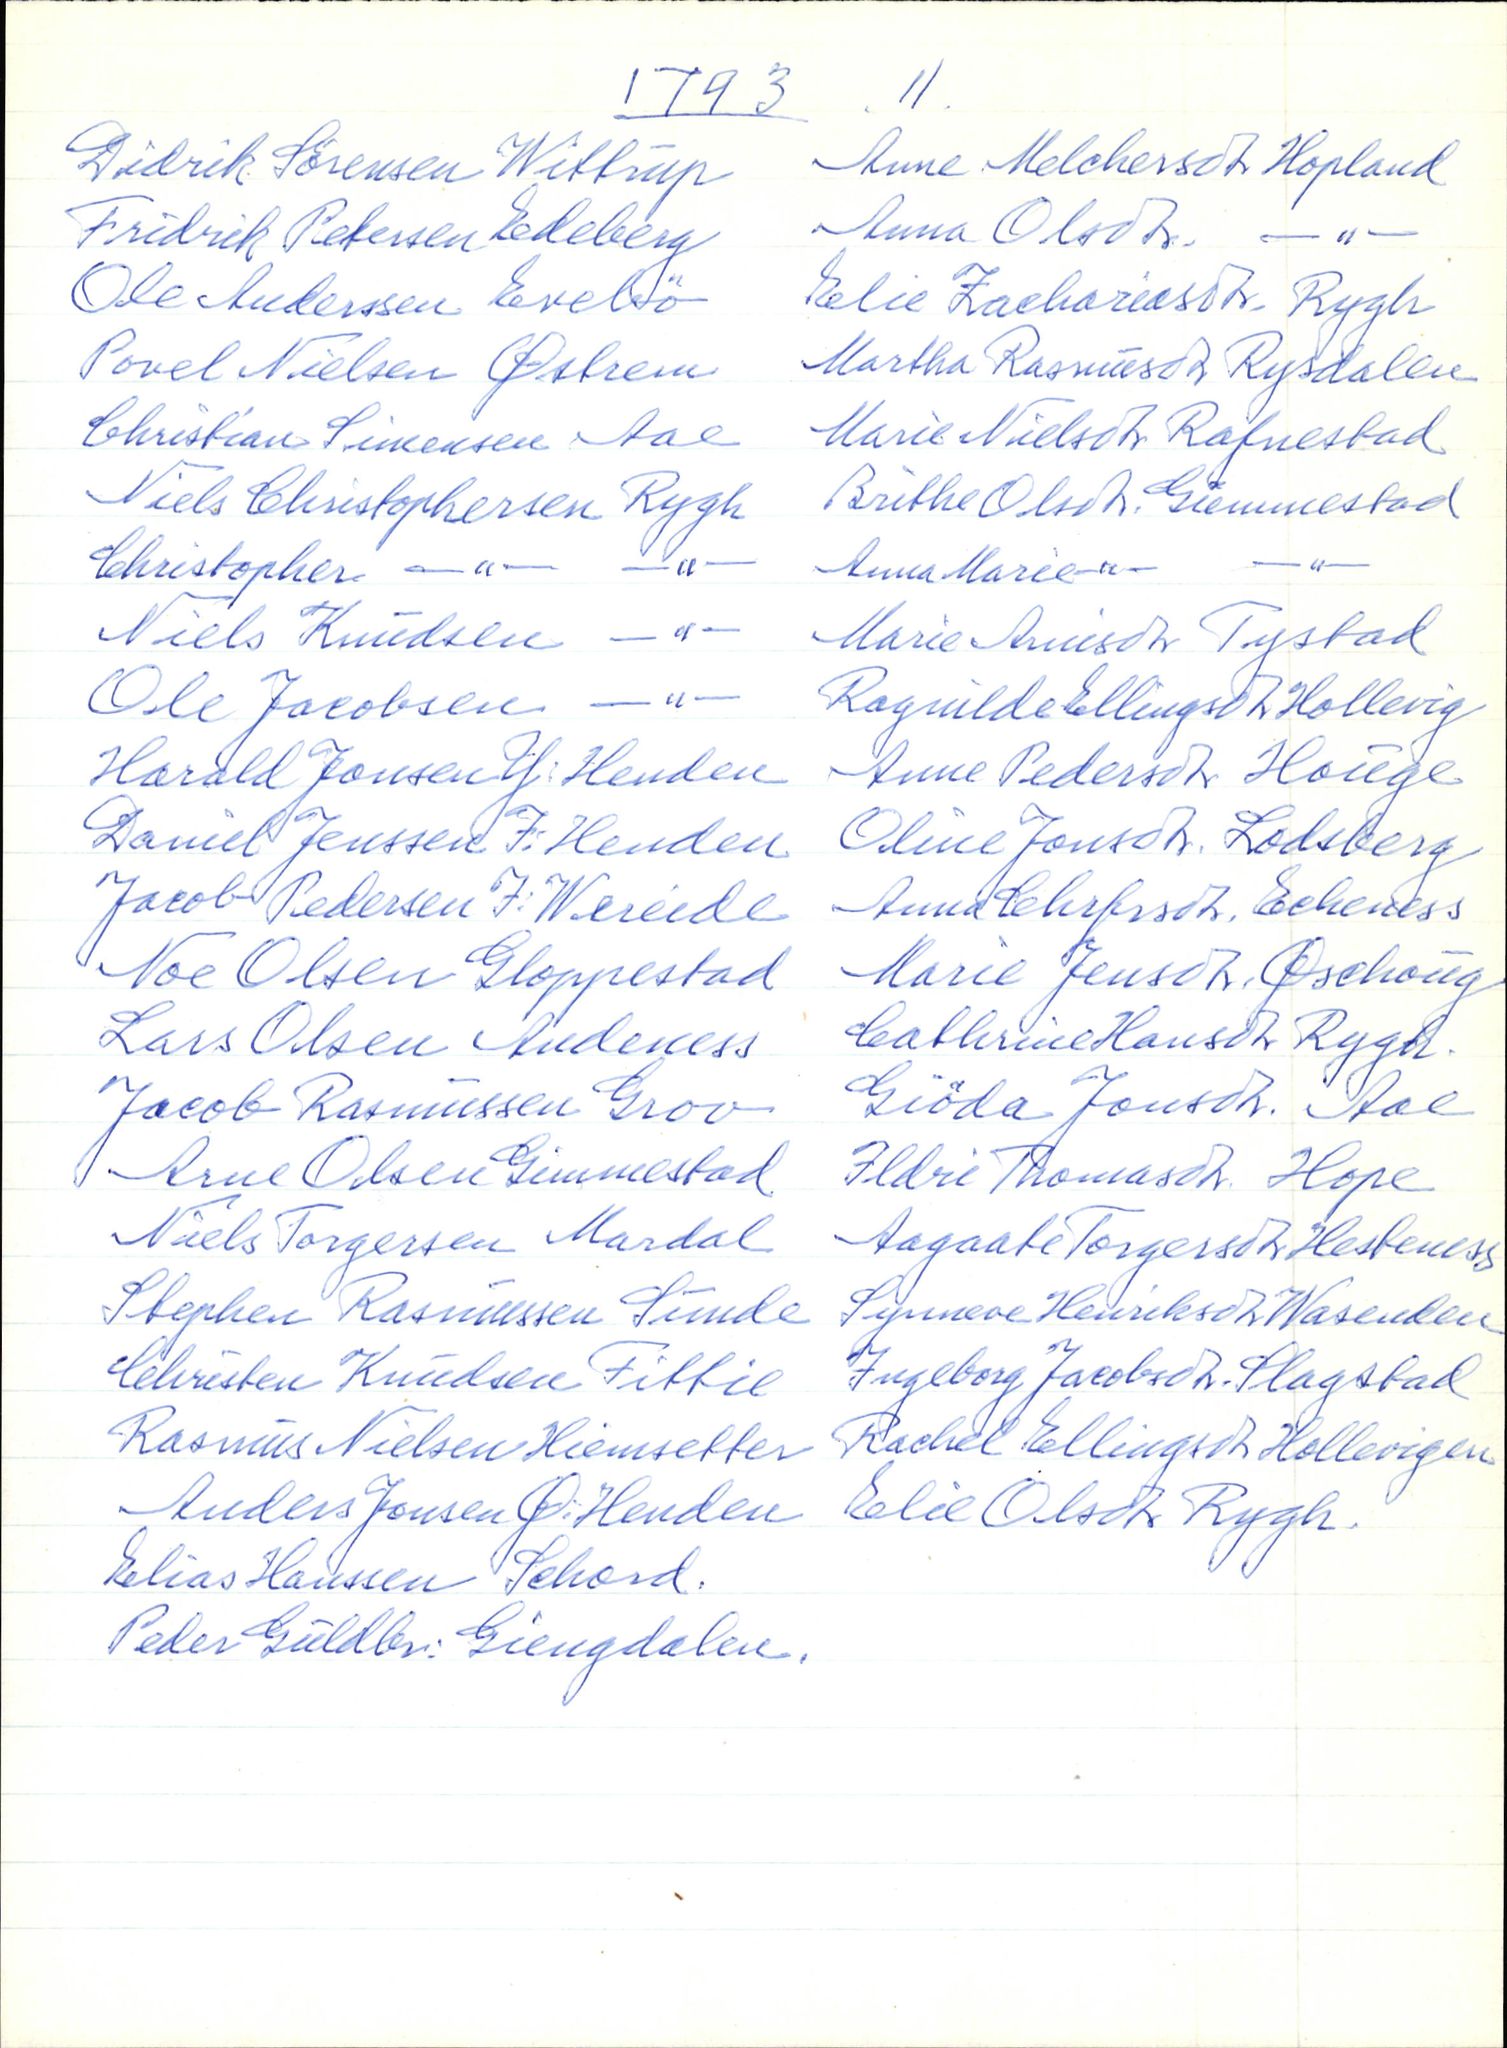 1793 11.
Didrik Sörensen Wittrup
Fridrik Petersen Edeberg
Ole Anderssen Evelsö
Povel Nielsen Østrem
Christian Simensen Aae
Niels Christophersen Rygh
Christopher —"— —"—
Niels Knudsen —"—
Ole Jacobsen —"—
Harald Jonsen Y: Henden
Daniel Jenssen I: Henden
Jacob Pedersen I: Wereide
Noe Olsen Gloppestad
Lars Olsen Andeness
Jacob Rasmussen Grov
Arne Olsen Gimmestad
Niels Torgersen Mardal
Stephen Rasmussen Sunde
Christen Knudsen Fittie
Rasmus Nielsen Hiemsetter
Anders Jonsen Ø: Henden
Elias Hanssen Schord.
Peder Guldbr: Giengdalen.
Anne Melchersdtr Hopland
Anna Olsdtr. —"—
Elie Zachariasdtr. Rygh
Martha Rasmusdtr Rysdalen
Marie Nielsdtr Rafnestad
Brithe Olsdtr. Giemmestad
Anna Marie —"— —"—
Marie Arnisdtr Tystad
Ragnilde Ellingsdtr Hollevig
Anne Pedersdtr Houge
Oline Jonsdtr. Lodsberg
Anna Chrfrsdtr. Echeness
Marie Jensdtr. Øschoug
Cathrine Hansdtr Rygh.
Giöda Jonsdtr. Aae
Ildri Thomasdtr. Hope
Aagaate Torgersdtr Hesteness
Synneve Henriksdtr Wasenden
Ingeborg Jacobsdtr. Slagstad
Rachel Ellingsdtr Hollevigen
Elie Olsdtr Rygh.